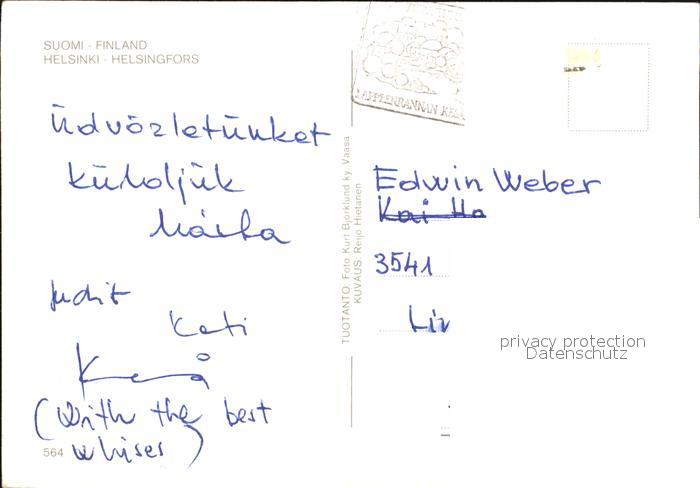 SUOMI - FINLAND
HELSINKI - HELSINGFORS
LAPPEENRANNAN
Üdvözletünket
küldjük
Márta
Judit
Kati
(With the best
whises)
564
TUOTANTO: Foto Kurt Björklund ky. Vaasa
KUVAUS: Reijo Hietanen
Edwin Weber
Kai Ha
3541
privacy protection
Datenschutz